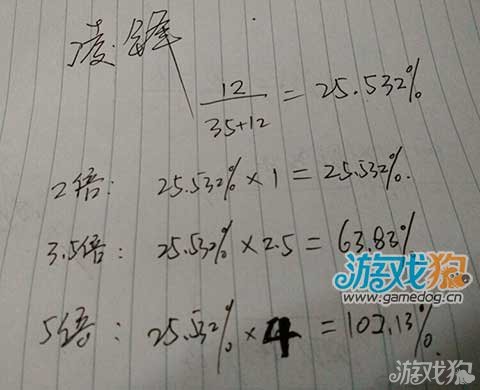 凌锋
12
35+12
= 25.532%
2倍: 25.532% × 1 = 25.532%.
3.5倍: 25.532% × 2.5 = 63.83%
游戏狗
www.gamedog.cn
5倍: 25.532% × 4 = 102.13%
游戏狗